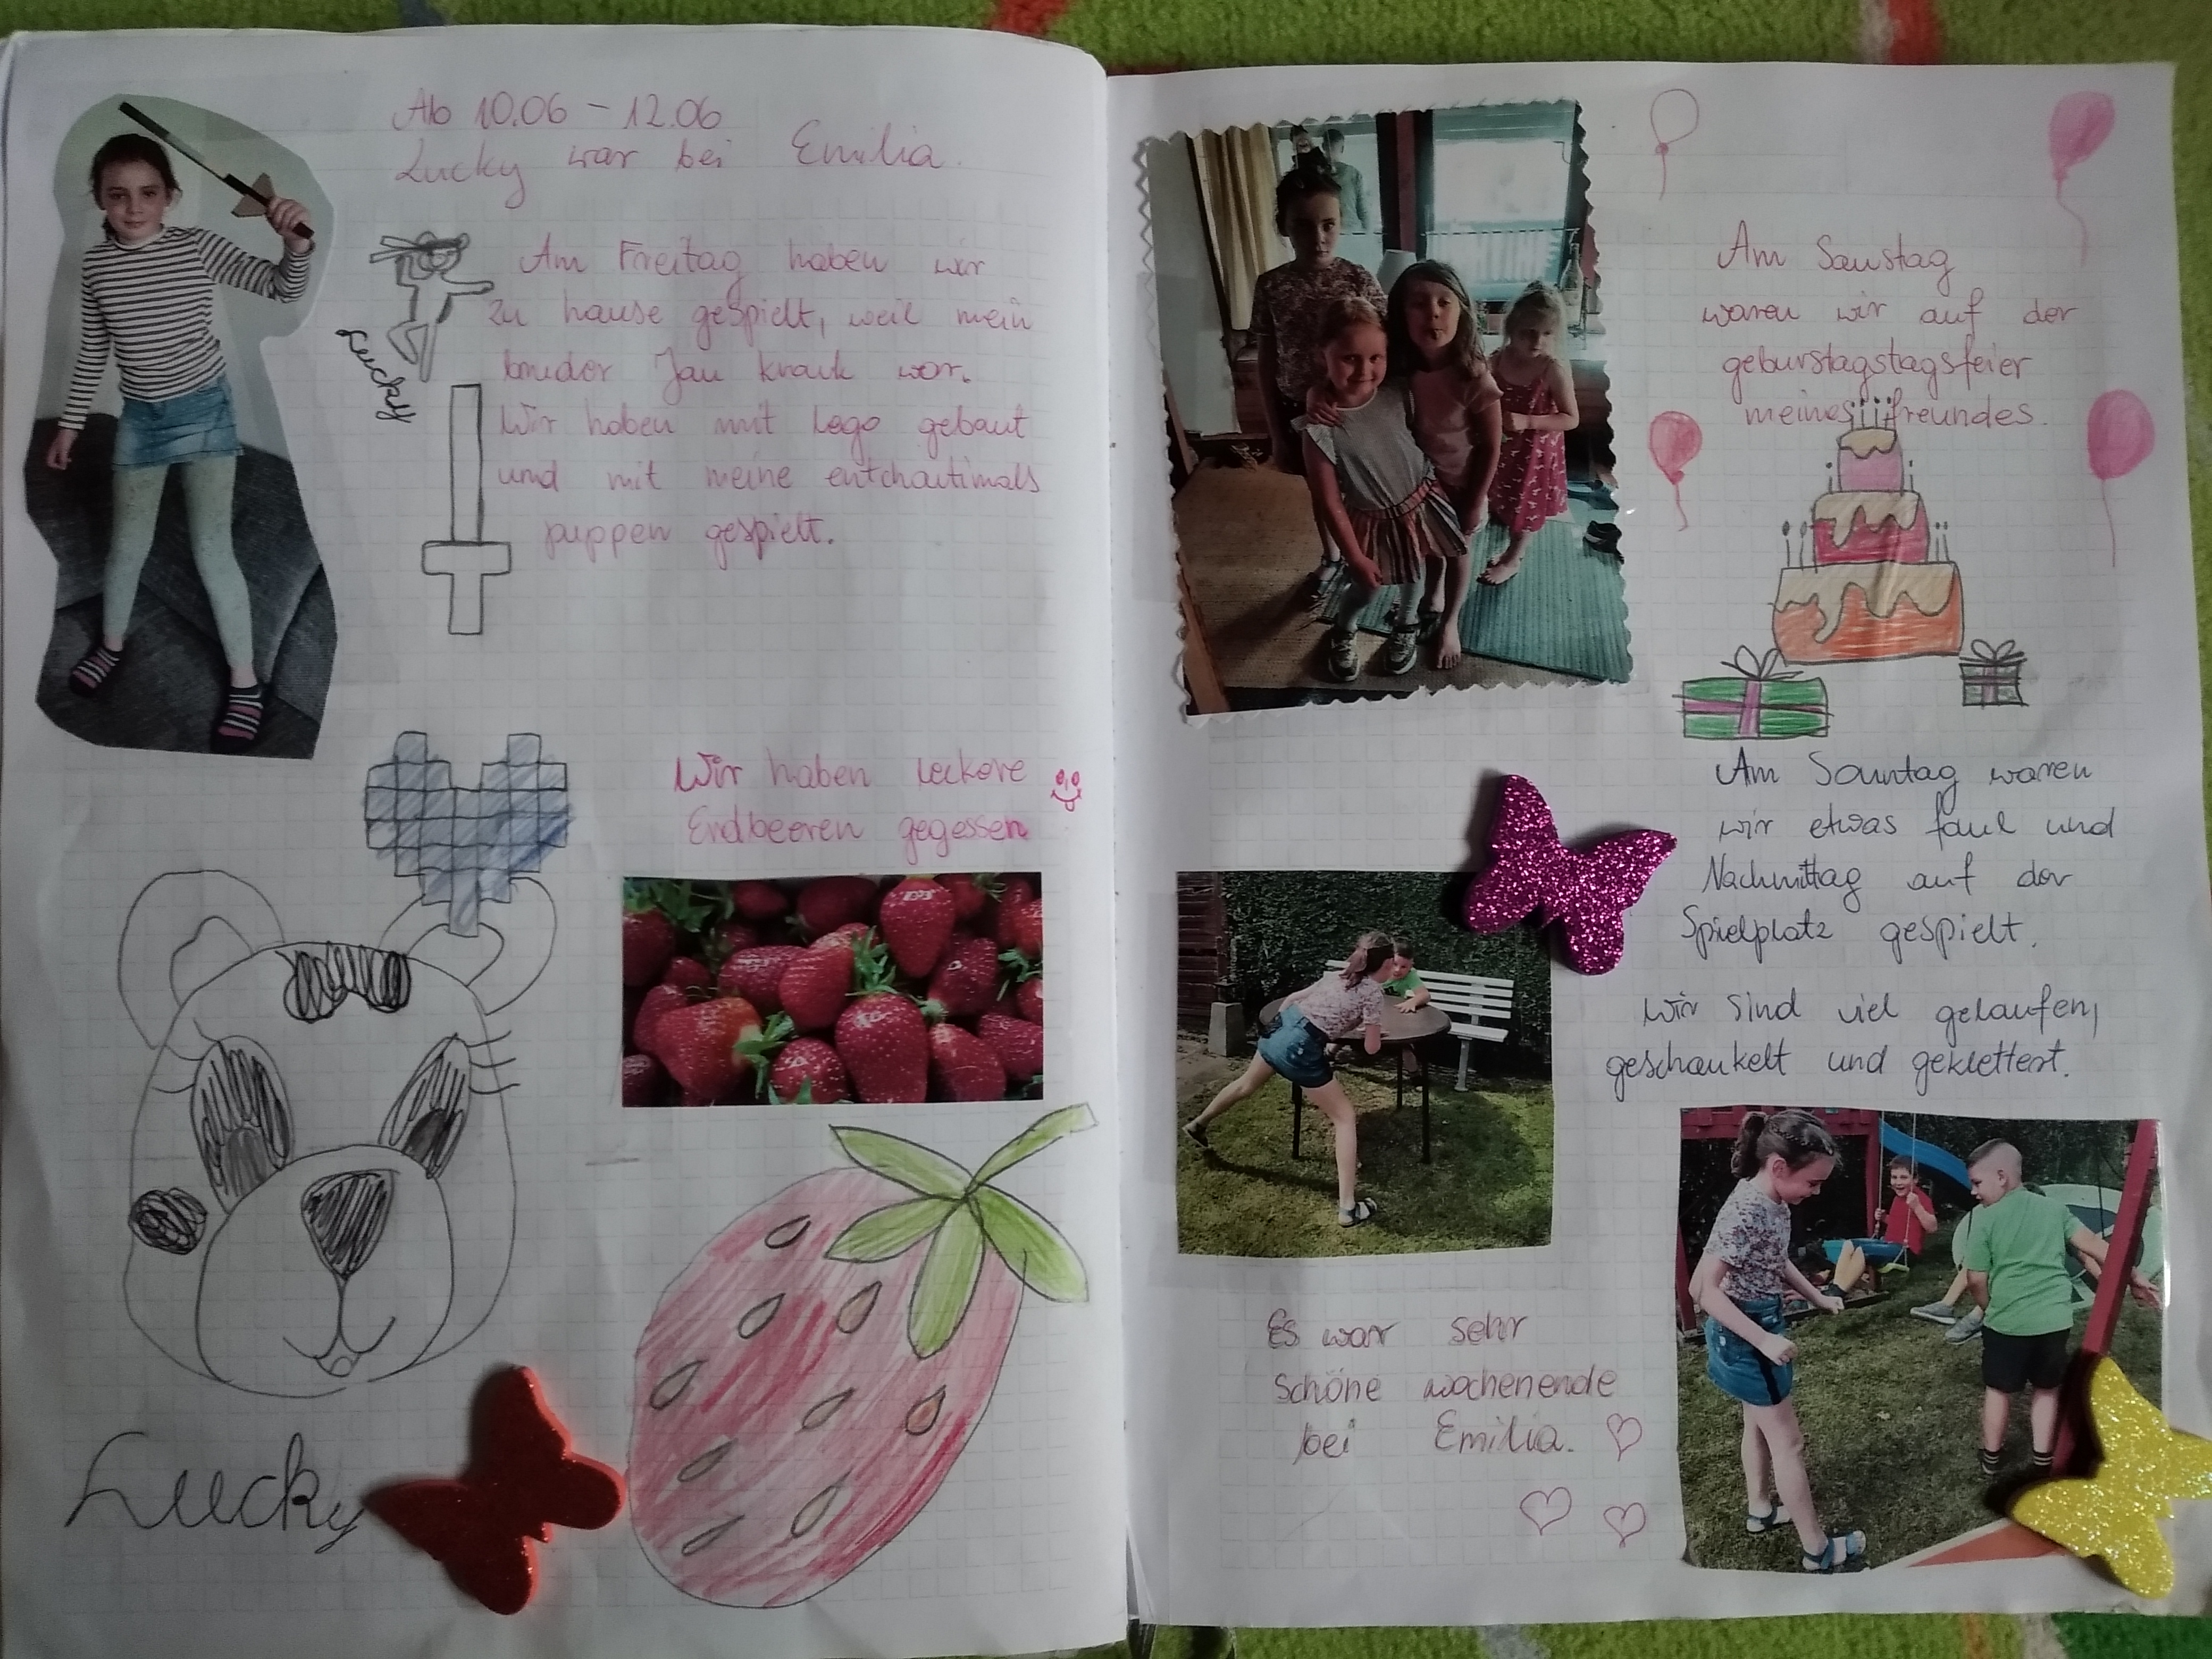 Ab 10.06 - 12.06
Lucky war bei Emilia.
Am Freitag haben wir
zu hause gespielt, weil mein
bruder Jan krank war.
Wir haben mit Lego gebaut
und mit meine entchantimals
puppen gespielt.
Lucky
Wir haben leckere
Erdbeeren gegessen
Lucky
Am Samstag
waren wir auf der
geburstagstagsfeier
meines freundes.
Am Sonntag waren
wir etwas faul und
Nachmittag auf der
Spielplatz gespielt.
Wir sind viel gelaufen,
geschaukelt und geklettert.
Es war sehr
schöne wochenende
bei Emilia.